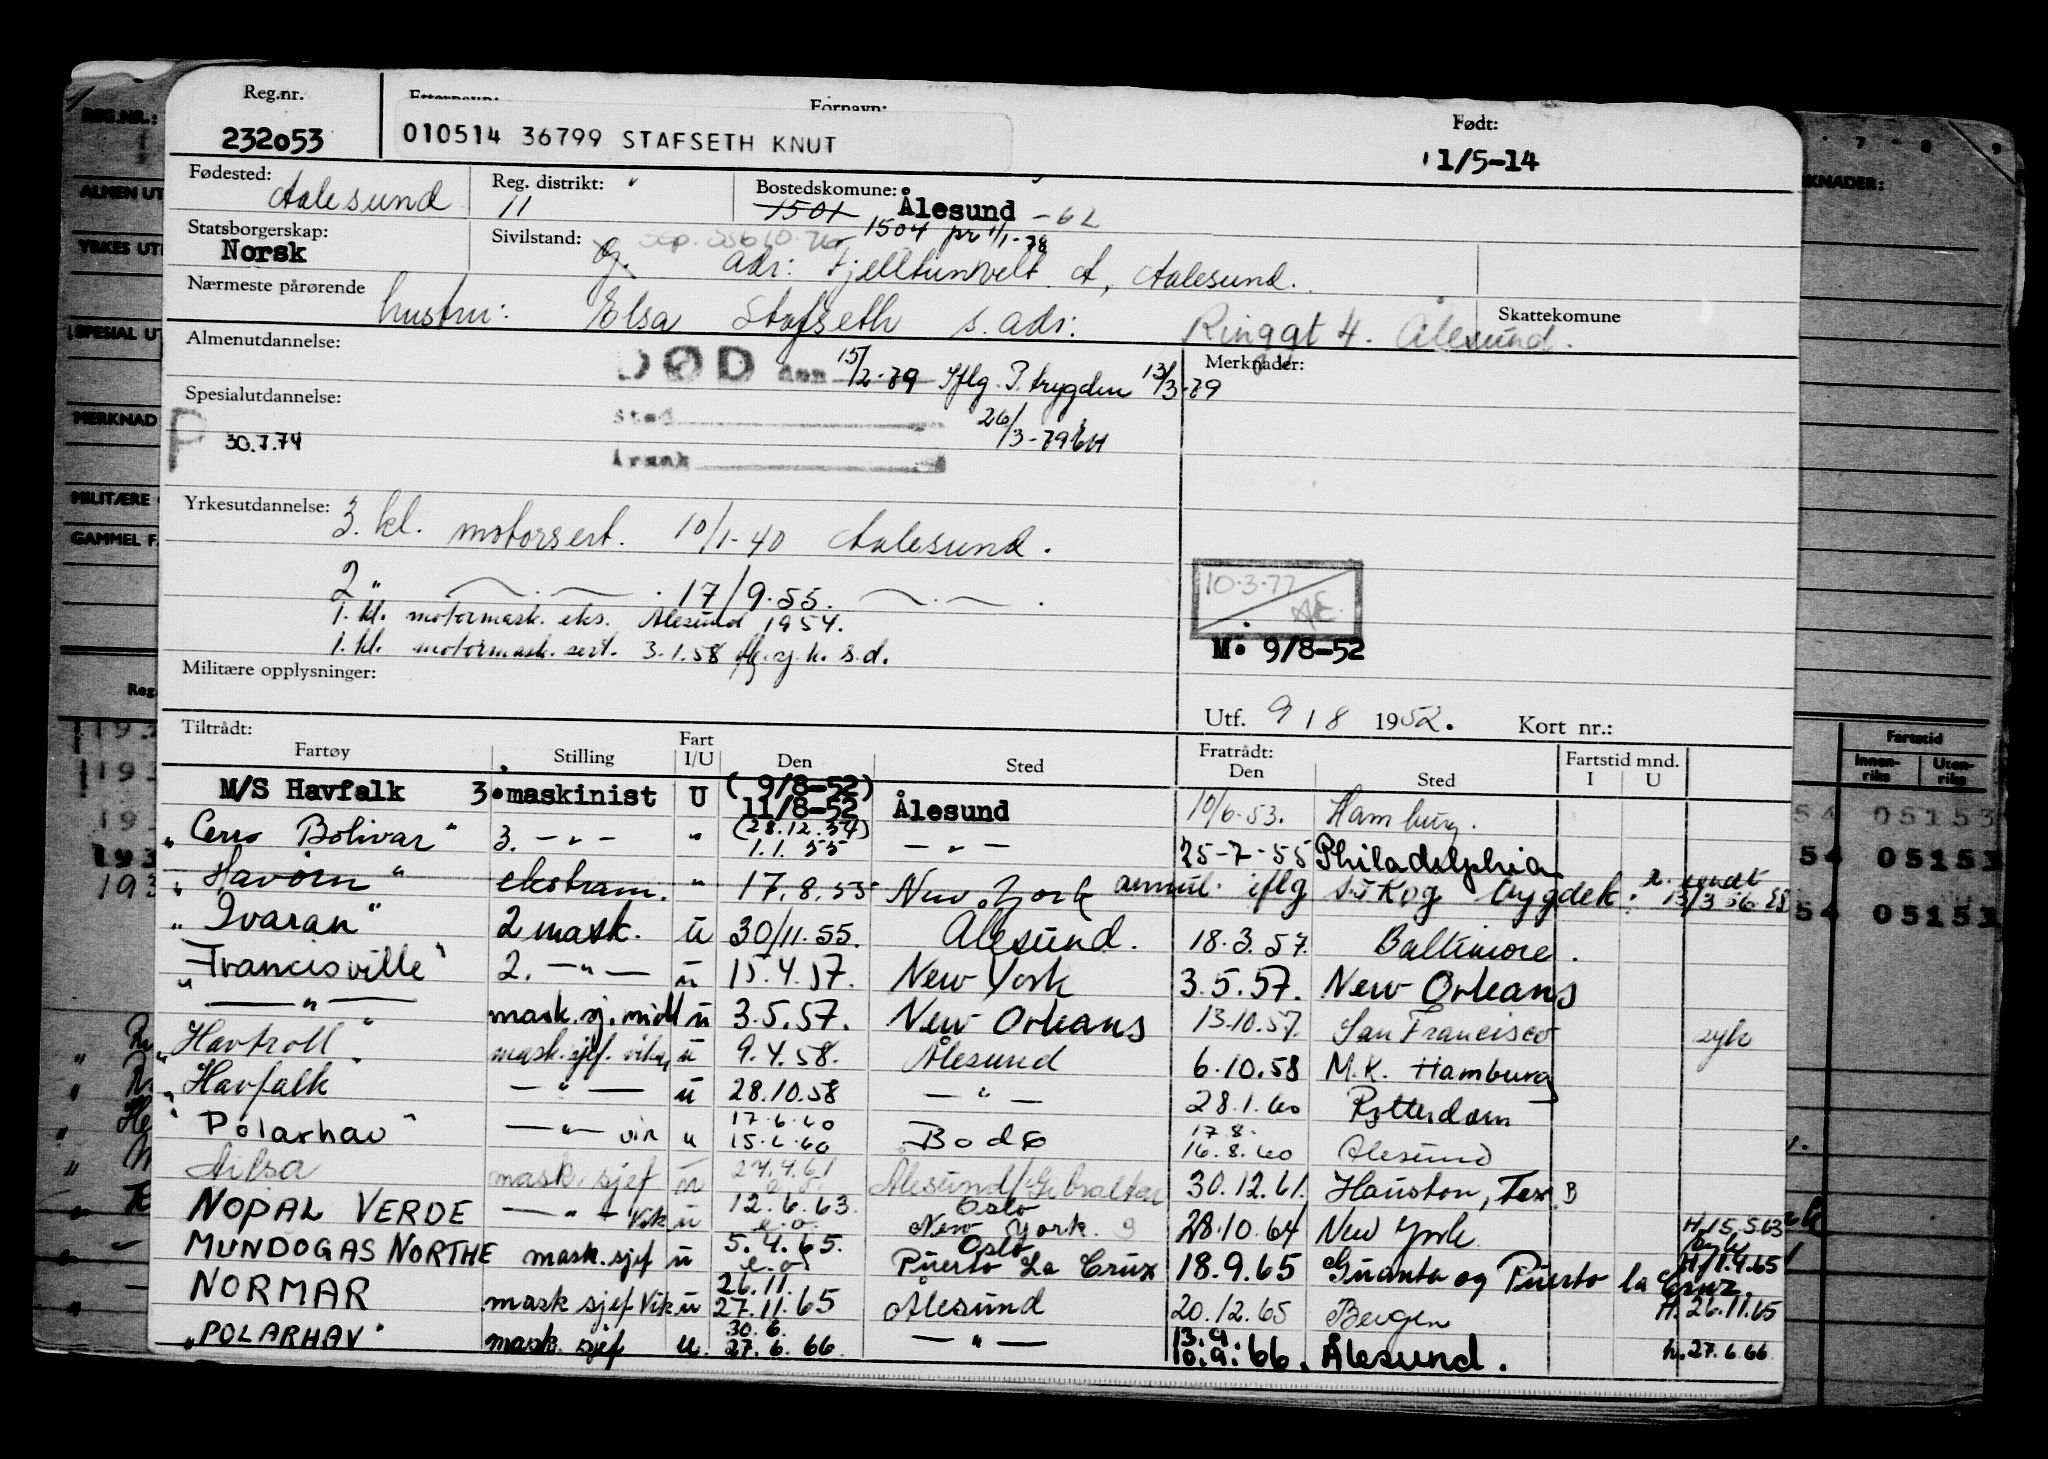 Reg.nr.
Fornavn:
Født:
232o53
010514 36799 STAFSETH KNUT
1/5-14
Fødested:
Aalesund
Reg. distrikt:
11
Bostedskomune:
1501 Ålesund -62
1504 pr 1/1-78
Statsborgerskap:
Norsk
Sivilstand:
g.
adr: Fjelltunveit A, Aalesund.
Nærmeste pårørende
hustru: Elsa Stafseth s. adr:
Ringgt 4. Ålesund.
Skattekomune
Almenutdannelse:
DØD den 15/2-79 Iflg. P. trygden 13/3-79
Merknader:
Spesialutdannelse:
Sted
26/3-79 EH
P 30.7.74
Årsak
Yrkesutdannelse:
3. kl. motorsert. 10/1-40 Aalesund.
2 " 17/9.55.
10.3.77
1. kl. motormask. eks. Ålesund 1954.
M. 9/8-52
1. kl. motormask. sert. 3.1.58 s.d.
Militære opplysninger:
Utf. 9/8 1952. Kort nr.:
Tiltrådt:
Fartøy Stilling Fart I/U Den Sted
Fratrådt: Den Sted Fartstid mnd. I U
M/S Havfalk 3. maskinist U (9/8-52) 11/8-52 Ålesund 10/6-53. Hamburg.
"Cerro Bolivar" 3. - " - " (28.12.54) 1.1.55 - " - 25-7-55 Philadelphia
"Havörn" ekstram. " 17.8.55 New York annul. iflg sökog trygdek. 13/3 56
"Ivaran" 2 mask. u 30/11.55. Ålesund. 18.3.57. Baltimore.
"Francisville" 2. - " - u 15.4.57. New York 3.5.57. New Orleans
- " - mask. sj. midl u 3.5.57. New Orleans 13.10.57. San Francisco syk
"Havtroll" mask. sjef. vikar u 9.4.58. Ålesund 6.10.58 M.K. Hamburg
"Havfalk" - " - u 28.10.58 - " - 28.1.60 Rotterdam
"Polarhav" - " - vik u 17.6.60 15.6.60 Bodö 17.8. 16.8.60 Ålesund
Ailsa mask. sjef u 27.4.61 Ålesund/Gibraltar 30.12.61. Houston, Tex. B
NOPAL VERDE - " - Vik u 12.6.63. e.o. Oslo New York. 9 28.10.64 New York H. 15.5.63
MUNDOGAS NORTHE mask. sjef u 5.4.65. e.o. Oslo Puerto La Cruz 18.9.65 Guanta og Puerto la Cruz. H. 1.4.65
NORMAR mask sjef Vik u 26.11. 27.11.65 Ålesund 20.12.65 Bergen H. 26.11.65
"POLARHAV" mask. sjef u. 30.6. 27.6.66. - " - 13.9. 10.9.66. Ålesund. h. 27.6.66
REG.NR.:
ALMEN UT
YRKES UT
SPESIAL UT
MERKNAD
MILITÆRE
GAMMEL F.
7 8 9
KNADER:
Fartstid
Innen-riks Uten-riks
54 05153
54 05153
54 05153